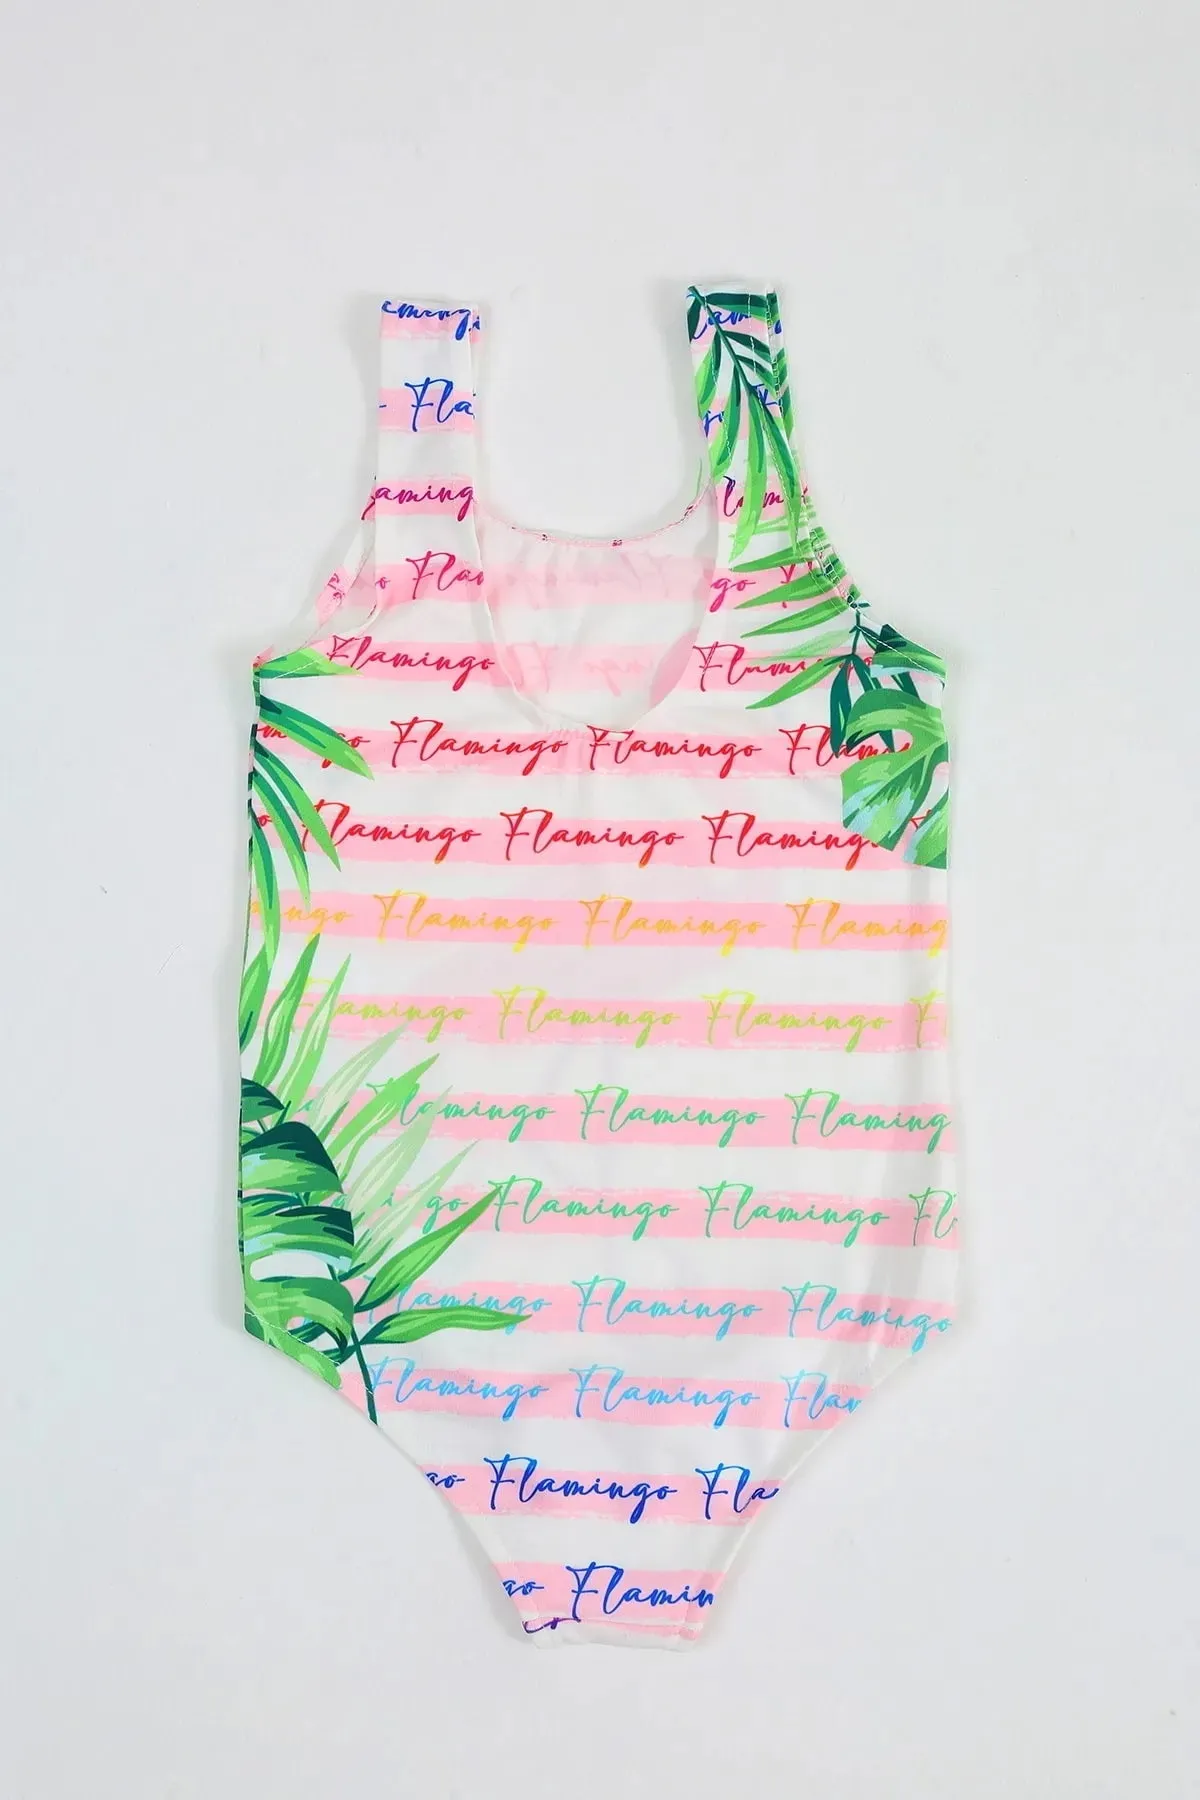 Flamingo
Flamingo Flamingo
Flamingo Flamingo Flamingo
Flamingo Flamingo
Flamingo Flamingo Flamingo
Flamingo Flamingo Flamingo
Flamingo Flamingo
Flamingo Flamingo
Flamingo Flamingo Flamingo
Flamingo Flamingo
Flamingo